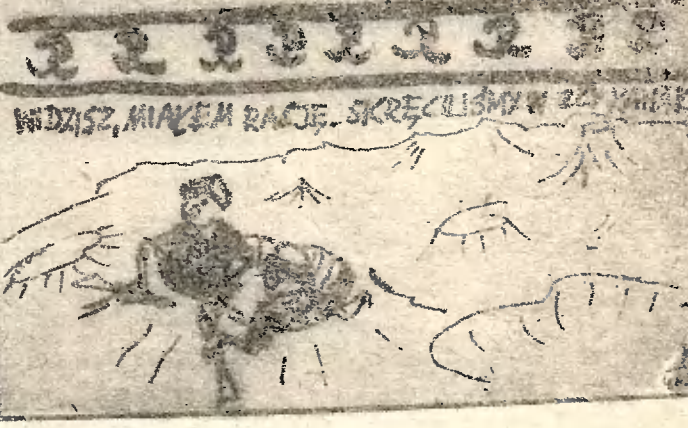 WIDZISZ, MIAŁEM RACJĘ. SKRĘCILIŚMY W ZŁĄ